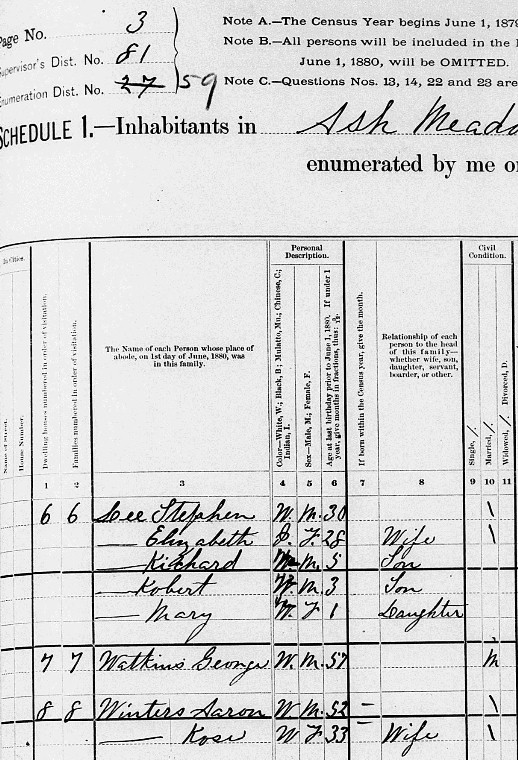 Page No. 3
Supervisor's Dist. No. 81
Enumeration Dist. No. 27 59
Note A.—The Census Year begins June 1, 1879
Note B.—All persons will be included in the
June 1, 1880, will be OMITTED.
Note C.—Questions Nos. 13, 14, 22 and 23 are
SCHEDULE 1.—Inhabitants in Ash Meado
enumerated by me o
In Cities.
Name of Street.
House Number.
Dwelling houses numbered in order of visitation.
Families numbered in order of visitation.
The Name of each Person whose place of abode, on 1st day of June, 1880, was in this family.
Personal Description.
Color—White, W.; Black, B.; Mulatto, Mu.; Chinese, C.; Indian, I.
Sex—Male, M.; Female, F.
Age at last birthday prior to June 1, 1880. If under 1 year, give months in fractions, thus: 3/12.
If born within the Census year, give the month.
Relationship of each person to the head of this family—whether wife, son, daughter, servant, boarder, or other.
Civil Condition.
Single, /.
Married, /.
Widowed, /. Divorced, D.
1 2 3 4 5 6 7 8 9 10 11
6 6 Lee Stephen W. M. 30 \
— Elizabeth F. 28 Wife \
— Richard M. 5 Son
— Robert M. 3 Son
— Mary F 1 Daughter
7 7 Watkins George W. M. 57 M
8 8 Winters Aaron W. M. 52 – \
— Rose W F 33 – Wife \